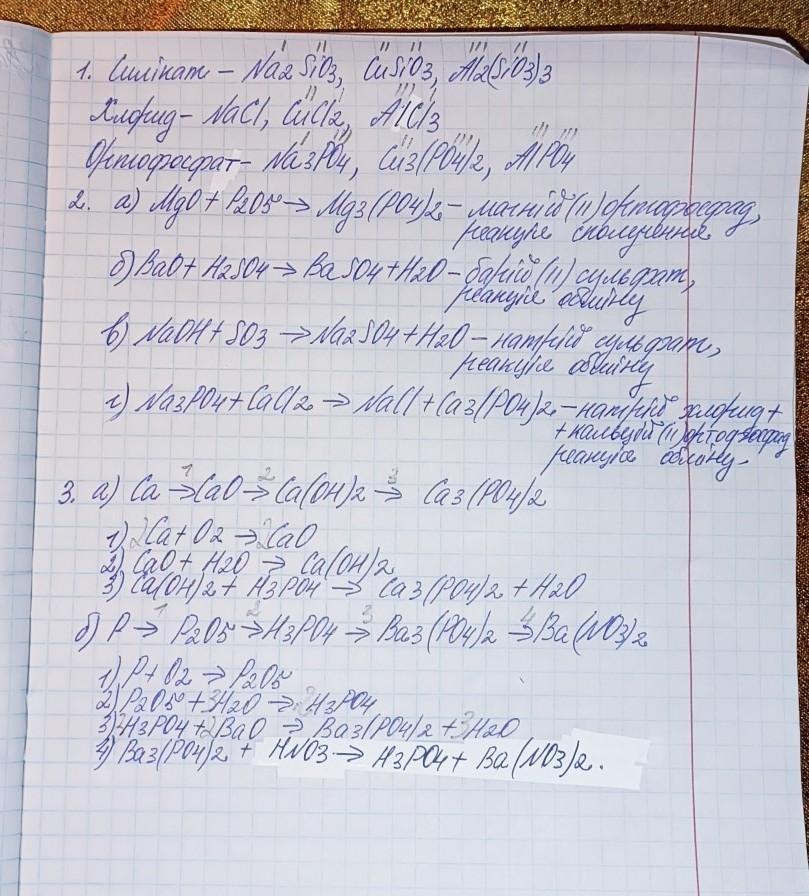 1. Силікат – Na2SiO3, CuSiO3, Al2(SiO3)3
Хлорид – NaCl, CuCl2, AlCl3
Ортофосфат – Na3PO4, Cu3(PO4)2, AlPO4
2. а) MgO + P2O5 → Mg3(PO4)2 – магній (II) ортофосфад,
реакція сполучення
б) BaO + H2SO4 → BaSO4 + H2O – барій (II) сульфат,
реакція обміну
в) NaOH + SO3 → Na2SO4 + H2O – натрій сульфат,
реакція обміну
г) Na3PO4 + CaCl2 → NaCl + Ca3(PO4)2 – натрій хлорид +
+ кальцій (II) ортофосфад
реакція обміну.
3. а) Ca →1 CaO →2 Ca(OH)2 →3 Ca3(PO4)2
1) 2Ca + O2 → 2CaO
2) CaO + H2O → Ca(OH)2
3) Ca(OH)2 + H3PO4 → Ca3(PO4)2 + H2O
б) P →1 P2O5 →2 H3PO4 →3 Ba3(PO4)2 →4 Ba(NO3)2
1) P + O2 → P2O5
2) P2O5 + 3H2O → 2H3PO4
3) 2H3PO4 + 2BaO → Ba3(PO4)2 + 3H2O
4) Ba3(PO4)2 + HNO3 → H3PO4 + Ba(NO3)2.